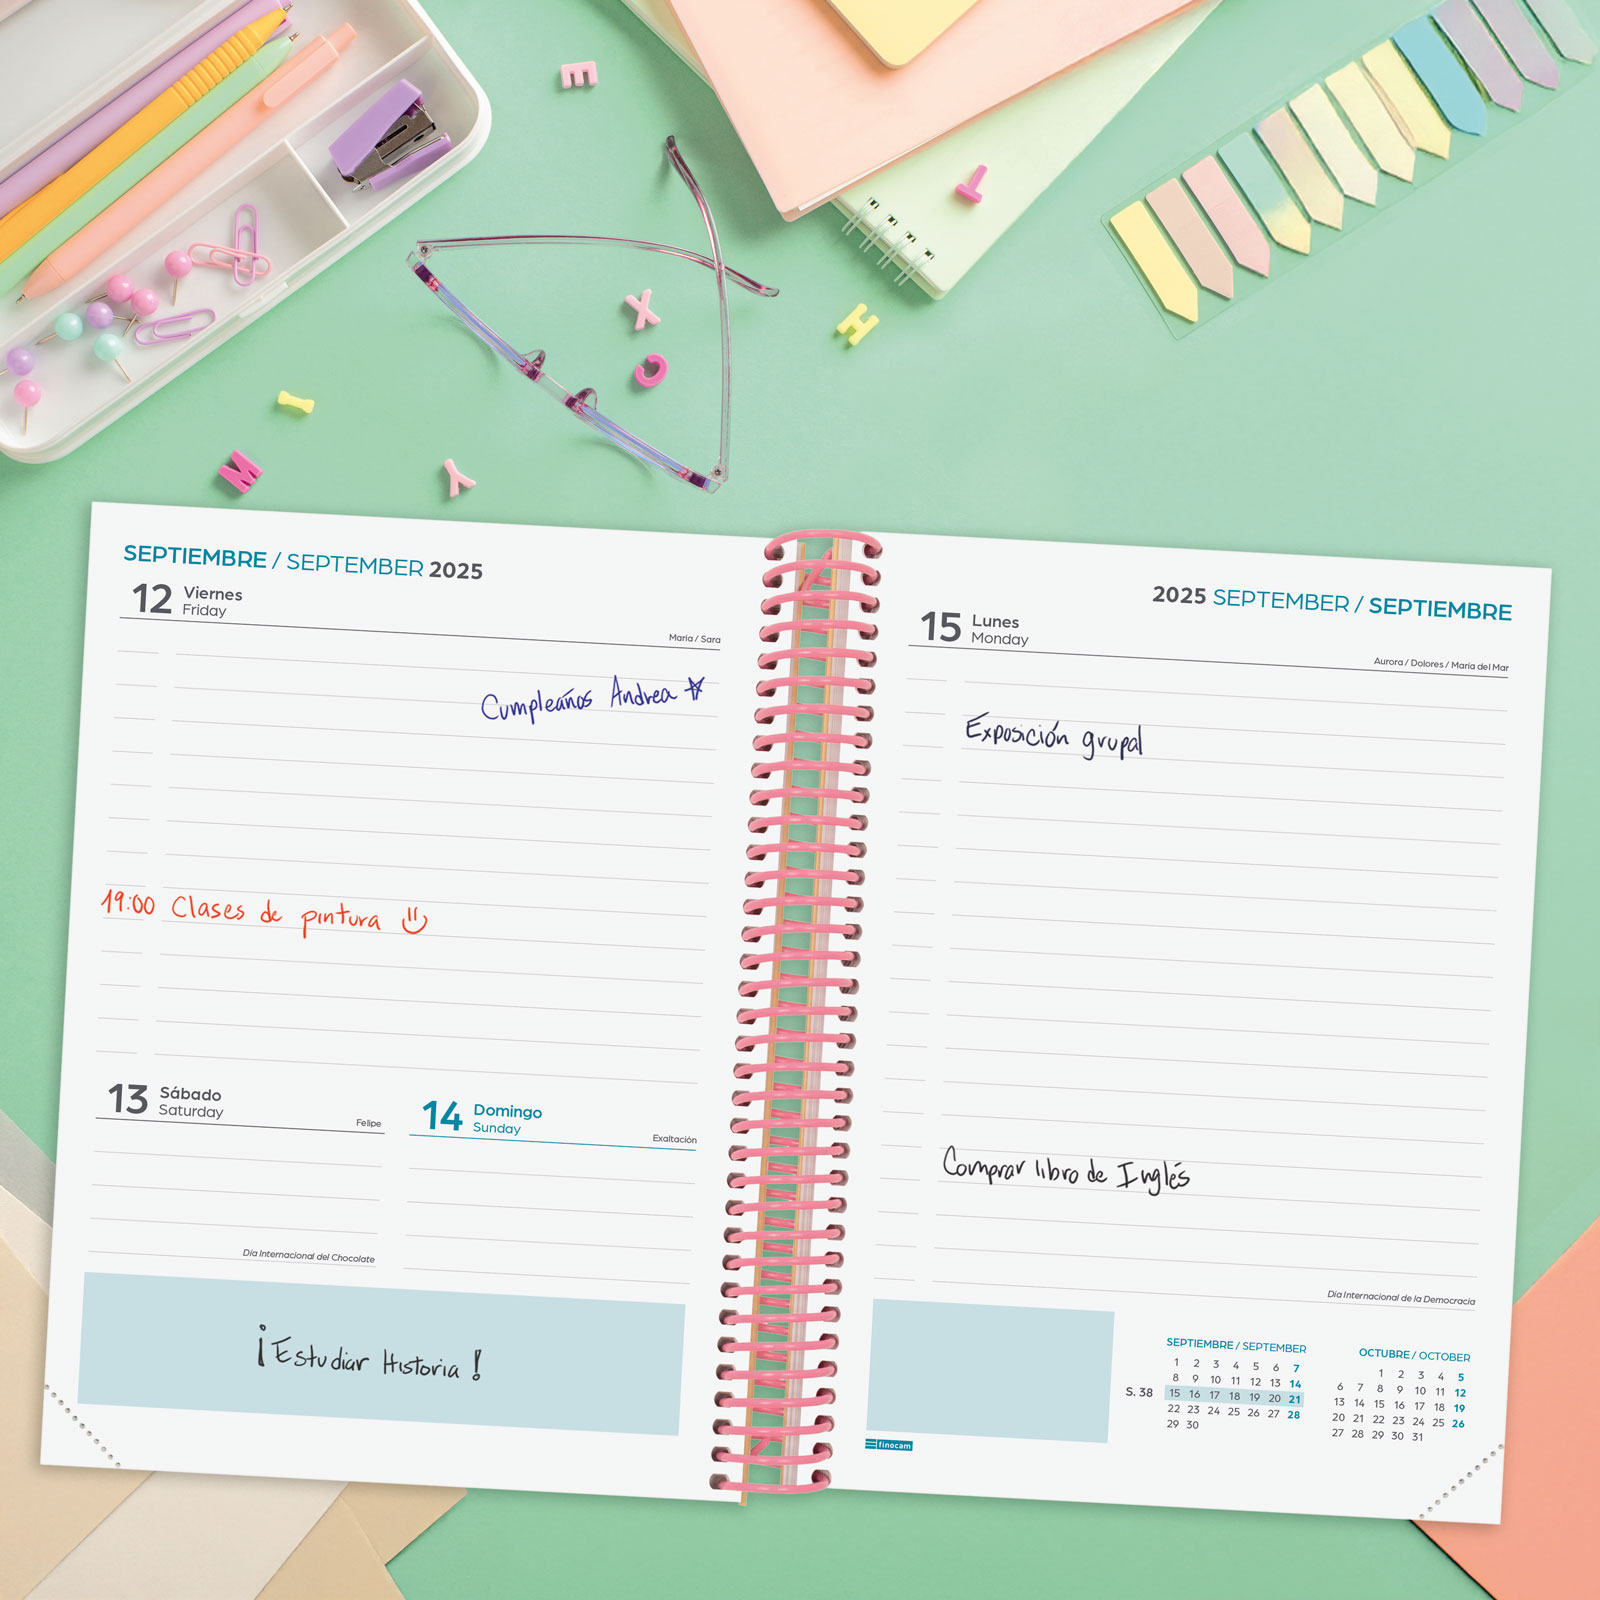 E
T
X
H
C
I
M
Y
SEPTIEMBRE / SEPTEMBER 2025
12 Viernes
Friday
María / Sara
Cumpleaños Andrea
19:00 Clases de pintura
13 Sábado
Saturday
Felipe
14 Domingo
Sunday
Exaltación
Día Internacional del Chocolate
¡Estudiar Historia!
2025 SEPTEMBER / SEPTIEMBRE
15 Lunes
Monday
Aurora / Dolores / María del Mar
Exposición grupal
Comprar libro de Inglés
Día Internacional de la Democracia
SEPTIEMBRE / SEPTEMBER
1 2 3 4 5 6 7
8 9 10 11 12 13 14
S. 38 15 16 17 18 19 20 21
22 23 24 25 26 27 28
29 30
OCTUBRE / OCTOBER
1 2 3 4 5
6 7 8 9 10 11 12
13 14 15 16 17 18 19
20 21 22 23 24 25 26
27 28 29 30 31
finocam